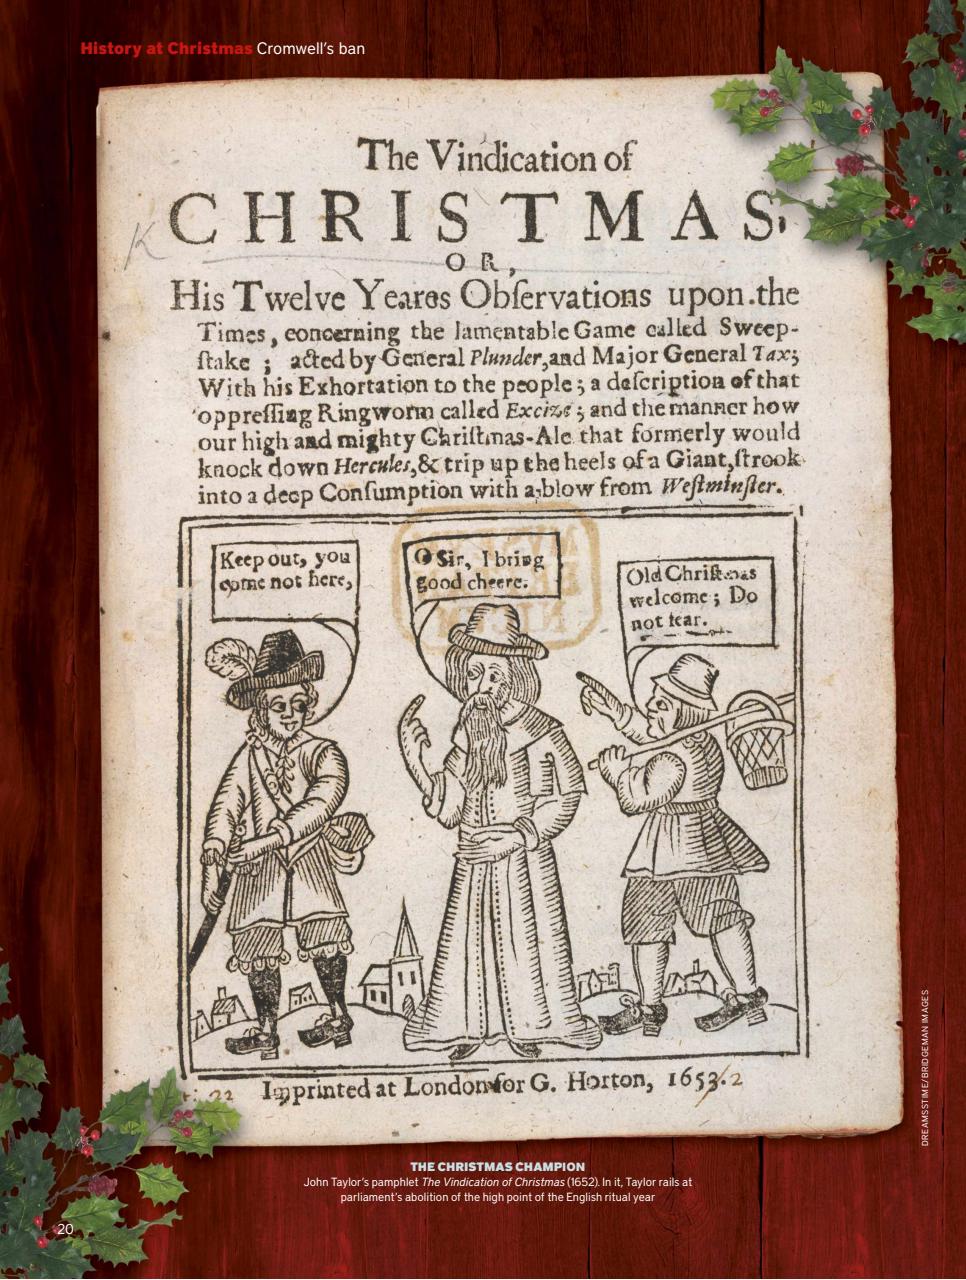 History at Christmas Cromwell's ban
The Vindication of
CHRISTMAS,
OR,
His Twelve Yeares Obſervations upon the
Times, concerning the lamentable Game called Sweep-
ſtake; acted by General Plunder, and Major General Tax;
With his Exhortation to the people; a deſcription of that
oppreſſing Ringworm called Excize; and the manner how
our high and mighty Chriſtmas-Ale that formerly would
knock down Hercules, & trip up the heels of a Giant, ſtrook
into a deep Conſumption with a blow from Weſtminſter.
Keep out, you
come not here,
O Sir, I bring
good cheere.
Old Chriſtmas
welcome; Do
not fear.
Imprinted at London for G. Horton, 1653. 2
22
K
THE CHRISTMAS CHAMPION
John Taylor's pamphlet The Vindication of Christmas (1652). In it, Taylor rails at
parliament's abolition of the high point of the English ritual year
DREAMSSTIME/BRIDGEMAN IMAGES
20